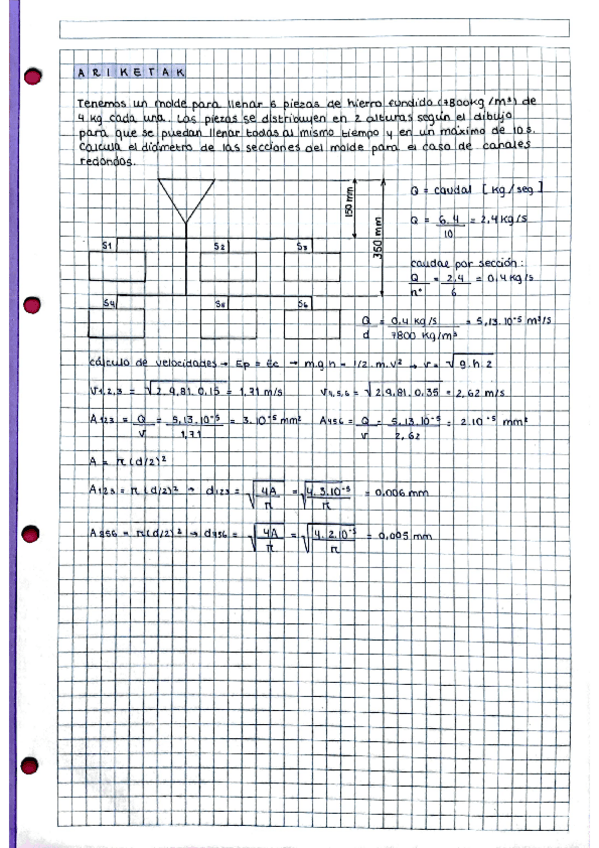 ARIKETAK
Tenemos un molde para llenar 6 piezas de hierro fundido (7800kg/m³) de
4 kg cada una. Las piezas se distribuyen en 2 alturas según el dibujo
para que se puedan llenar todas al mismo tiempo y en un máximo de 10 s.
Calcula el diámetro de las secciones del molde para el caso de canales
redondos.
150 mm
350 mm
S1 S2 S3
S4 S5 S6
Q = caudal [kg/seg]
Q = 6.4 / 10 = 2,4 kg/s
caudal por sección:
Q / nº = 2,4 / 6 = 0,4 kg/s
Q / d = 0,4 kg/s / 7800 kg/m³ = 5,13.10⁻⁵ m³/s
cálculo de velocidades → Ep = Ec → m.g.h = 1/2.m.v² → v = √g.h.2
V1,2,3 = √2.9,81.0,15 = 1,71 m/s V4,5,6 = √2.9,81.0,35 = 2,62 m/s
A123 = Q / v = 5,13.10⁻⁵ / 1,71 = 3.10⁻⁵ mm² A456 = Q / v = 5,13.10⁻⁵ / 2,62 = 2.10⁻⁵ mm²
A = π(d/2)²
A123 = π(d/2)² → d123 = √4A / π = √4.3.10⁻⁵ / π = 0,006 mm
A456 = π(d/2)² → d456 = √4A / π = √4.2.10⁻⁵ / π = 0,005 mm